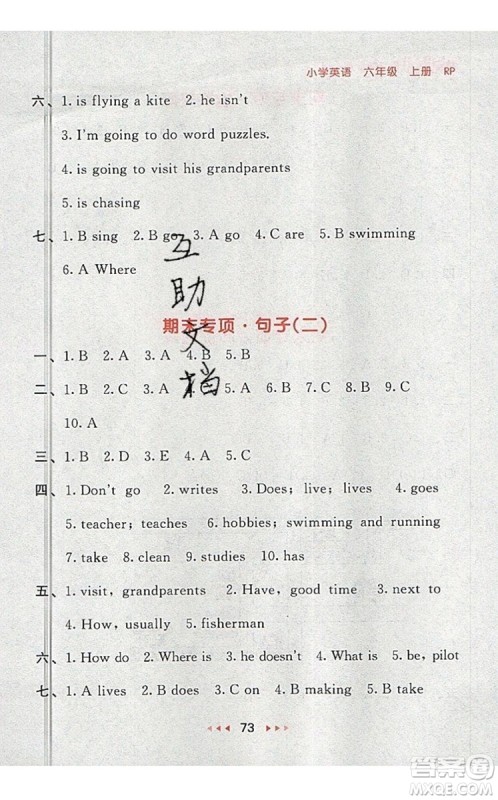 小学英语 六年级 上册 RP
六、1. is flying a kite 2. he isn't
3. I'm going to do word puzzles.
4. is going to visit his grandparents
5. is chasing
七、1. B sing 2. B go 3. A go 4. C are 5. B swimming
6. A Where
期末专项·句子(二)
一、1. B 2. A 3. A 4. B 5. B
二、1. B 2. C 3. A 4. C 5. A 6. B 7. A 8. B 9. C
10. A
三、1. B 2. D 3. B 4. A 5. C
四、1. Don't go 2. writes 3. Does; live; lives 4. goes
5. teacher; teaches 6. hobbies; swimming and running
7. take 8. clean 9. studies 10. has
五、1. visit, grandparents 2. Have, good time 3. next to
4. How, usually 5. fisherman
六、1. How do 2. Where is 3. he doesn't 4. What is 5. be, pilot
七、1. A lives 2. B does 3. C and 4. B making 5. B take
73
互助文档
答案圈
MXQE.COM